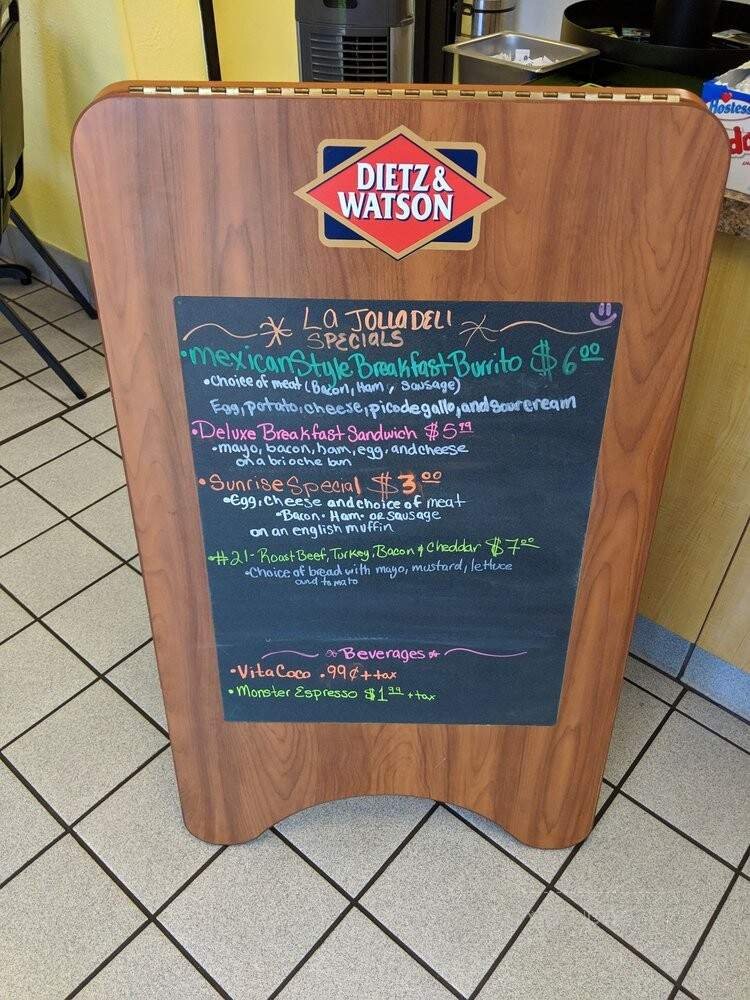 Hostess
DIETZ &
WATSON
LA JOLLA DELI
SPECIALS
•Mexican Style Breakfast Burrito $6.00
•Choice of meat (Bacon, Ham, Sausage)
Egg, potato, cheese, pico de gallo, and sour cream
•Deluxe Breakfast Sandwich $5.99
•mayo, bacon, ham, egg, and cheese
on a brioche bun
•Sunrise Special $3.00
•Egg, Cheese and choice of meat
•Bacon• Ham• or Sausage
on an english muffin
•#21- Roast Beef, Turkey, Bacon & Cheddar $7.00
•Choice of bread with mayo, mustard, lettuce
and tomato
Beverages
•Vita Coco .99¢ + tax
•Monster Espresso $1.99 + tax